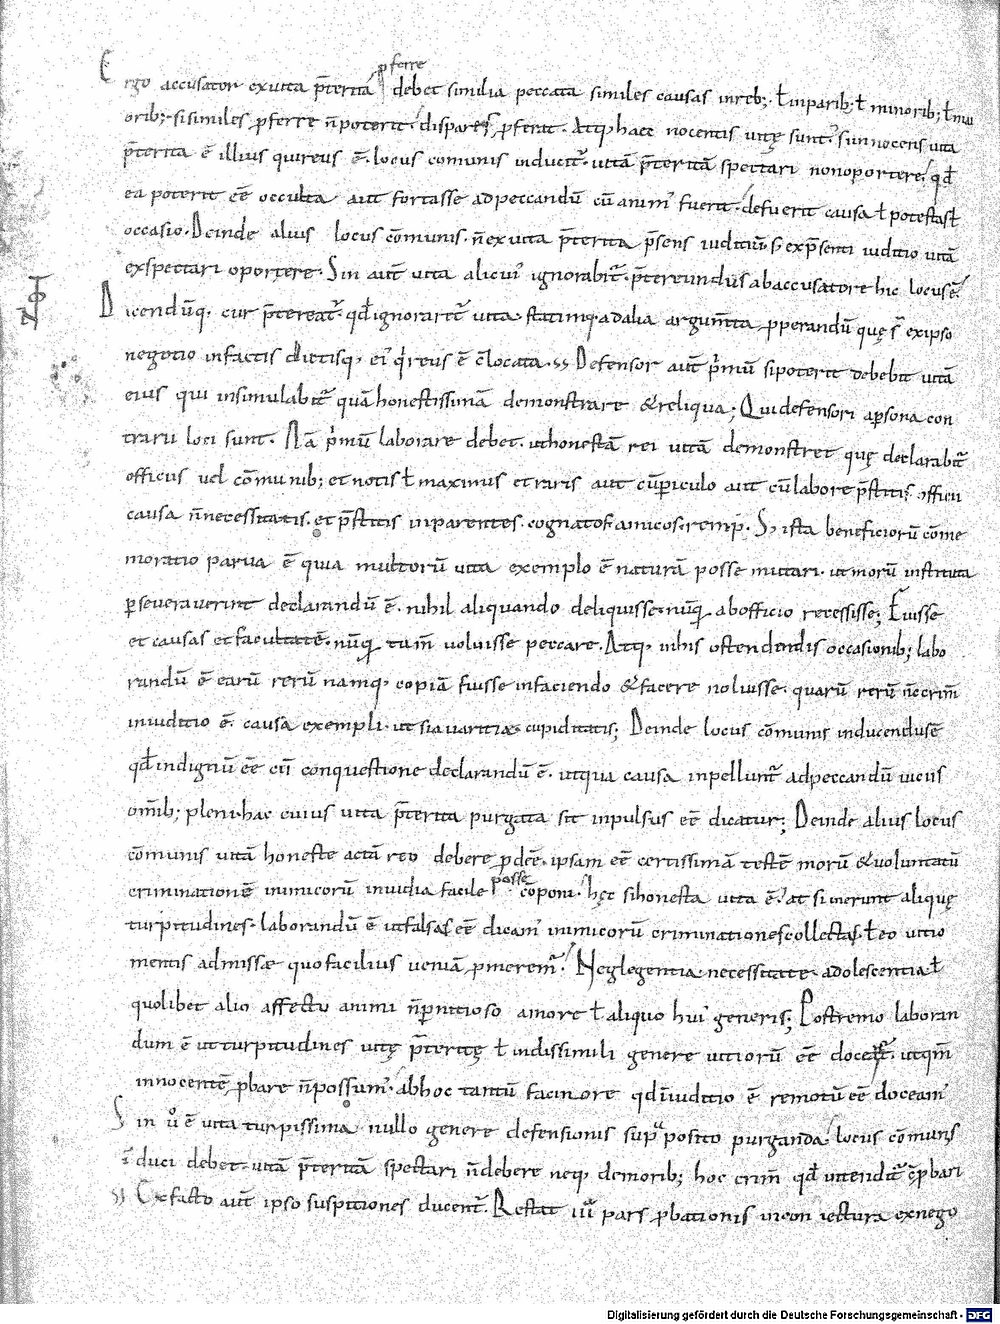 Ergo accusator ex uita p̄terita p̱ferre debet similia peccata similes causas in reb; ł in parib; ł minorib; ł ma
orib; si similes p̱ferre n̄ poterit. dispares p̱ferat. Atq; haec nocentis uitę sunt. Si innocens uita
p̄terita ē illius qui reus ē. locus comunis inducit᷑. uitā p̄teritā spectari non oportere. qđ
ea poterit eē occulta aut fortasse ad peccandū cū animꝰ fuerit. defuerit causa ł potestas ł
occasio. Deinde alius locus cōmunis. n̄ ex uita p̄terita p̄sens iuditiū. s; ex p̄senti iuditio uitā
exspectari oportere. Sin aut̄ uita alicuiꝰ ignorabit᷑. p̄tereundus ab accusatore hic locus ē.
Dicendūq. cur p̄tereat᷑. qđ ignoraret᷑ uita statimq. ad alia argum̄ta p̱perandū quę s̄ ex ipso
negotio in factis dictisq; eiꝰ q̇ reus ē c̄locata. Defensor aut̄ ṗmū si poterit debebit uitā
eius qui insimulabit᷑ quā honestissimā demonstrare & reliqua; Qui defensori a p̱sona con
trarii loci sunt. Nā ṗmū laborare debet. ut honestā rei uitā demonstret quę declarabit᷑
officiis uel cōmunib; et notis ł maximis et raris aut cū p̱iculo aut cū labore p̄stitis. officii
causa n̄ necessitatis. et p̄stitis in parentes. cognatos. amicos. remp̄. S; ista beneficiorū cōme
moratio parua ē quia multorū uita exemplo ē naturā posse mutari. ut morū instituta
p̱seuerauerint declarandū ē. nihil aliquando deliquisse. nūq̄ ab officio recessisse; Fuisse
et causas et facultatē. nūq̄ tam̄ uoluisse peccare. Atq; in his ostendendis occasionib; labo
randū ē earū rerū namq; copiā fuisse in faciendo & facere noluisse. quarū rerū n̄c crim̄
in iuditio ē. causa exempli. ut si auaritiae cupiditatis; Deinde locus cōmunis inducendus ē
qđ indignū eē cū conquestione declarandū ē. ut qua causa inpellunt᷑ ad peccandū uiciis
om̄ib; pleni. hac cuius uita p̄terita purgata sit inpulsus eē dicatur; Deinde alius locus
cōmunis uitā honeste actā reo debere p̱dc̄ē. ipsam eē certissimā testē morū & uoluntatū
criminationē inimicorū inuidia facile posse cōponi. hęc si honesta uita ē. at si inerunt aliquę
turpitudines. laborandū ē ut falsas eē dicamꝰ inimicorū criminationes collectas. ł eo uitio
mentis admissae quo facilius ueniā p̱merem᷑. Neglegentia necessitate adolescentia ł
quolibet alio affectu animi n̄ p̱nitioso amore ł aliquo huiꝰ generis; Postremo laboran
dum ē ut turpitudines uitę p̄teritę ł in dissimili genere uitiorū eē doceat᷑. ut qm̄
innocentē p̱bare n̄ possumꝰ. ab hoc tantū facinore qđ in iuditio ē remotū eē doceamꝰ
Sin ů ē uita turpissima nullo genere defensionis sup̱ posito purganda. locus cōmunis
īduci debet. uitā p̄teritā spectari n̄ debere neq; de morib; hoc crim̄ qđ intendit᷑ ēp̱bari
Ex facto aut̄ ipso suspitiones ducent᷑. Restat iii pars p̱bationis in coniectura ex nego
Digitalisierung gefördert durch die Deutsche Forschungsgemeinschaft - DFG